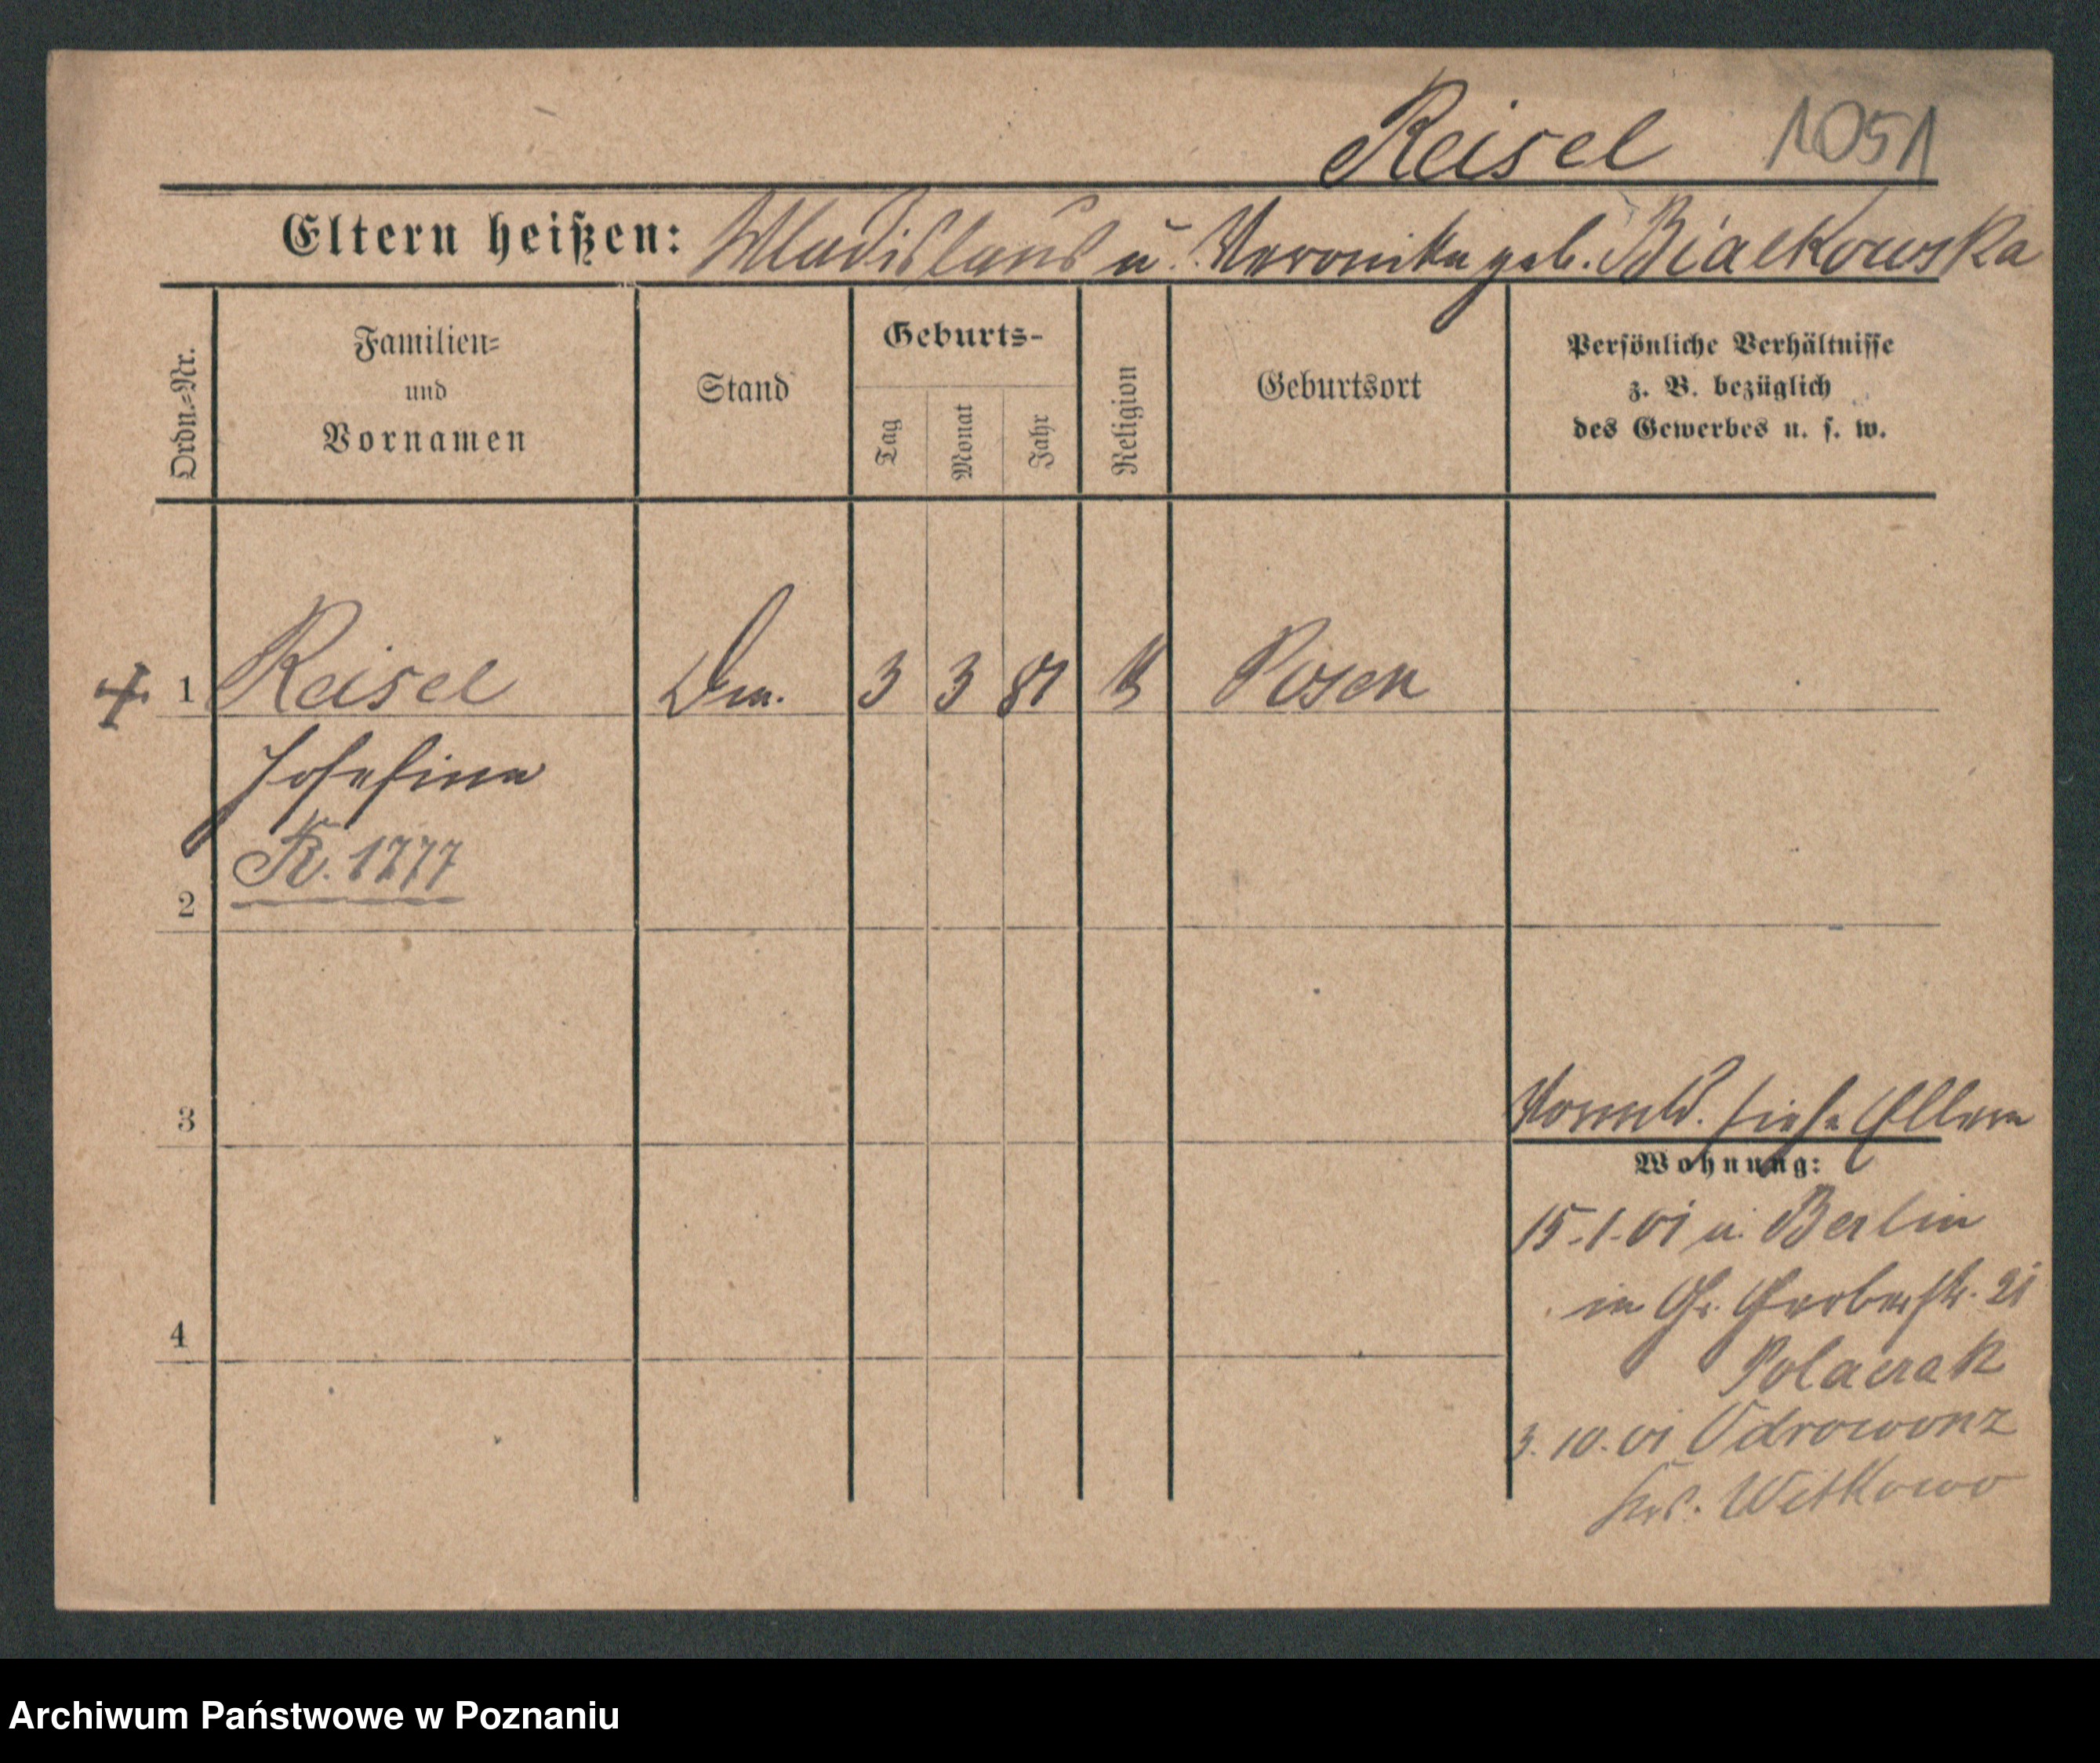 Reisel 1051
Eltern heißen: Wladislaus u. Veronika geb. Bialkowska
Ordn.=Nr.
Familien=
und
Vornamen
Stand
Geburts-
Tag
Monat
Jahr
Religion
Geburtsort
Persönliche Verhältnisse
z. B. bezüglich
des Gewerbes u. s. w.
1 Reisel 3 3 81 Posen
Josefina
R. 1777
2
3
siehe Eltern
Wohnung:
15.1.01 u. Berlin
in Gr. Gerberstr. 21
4
3.10.01 Odrowonz
Krs. Witkowo
Archiwum Państwowe w Poznaniu